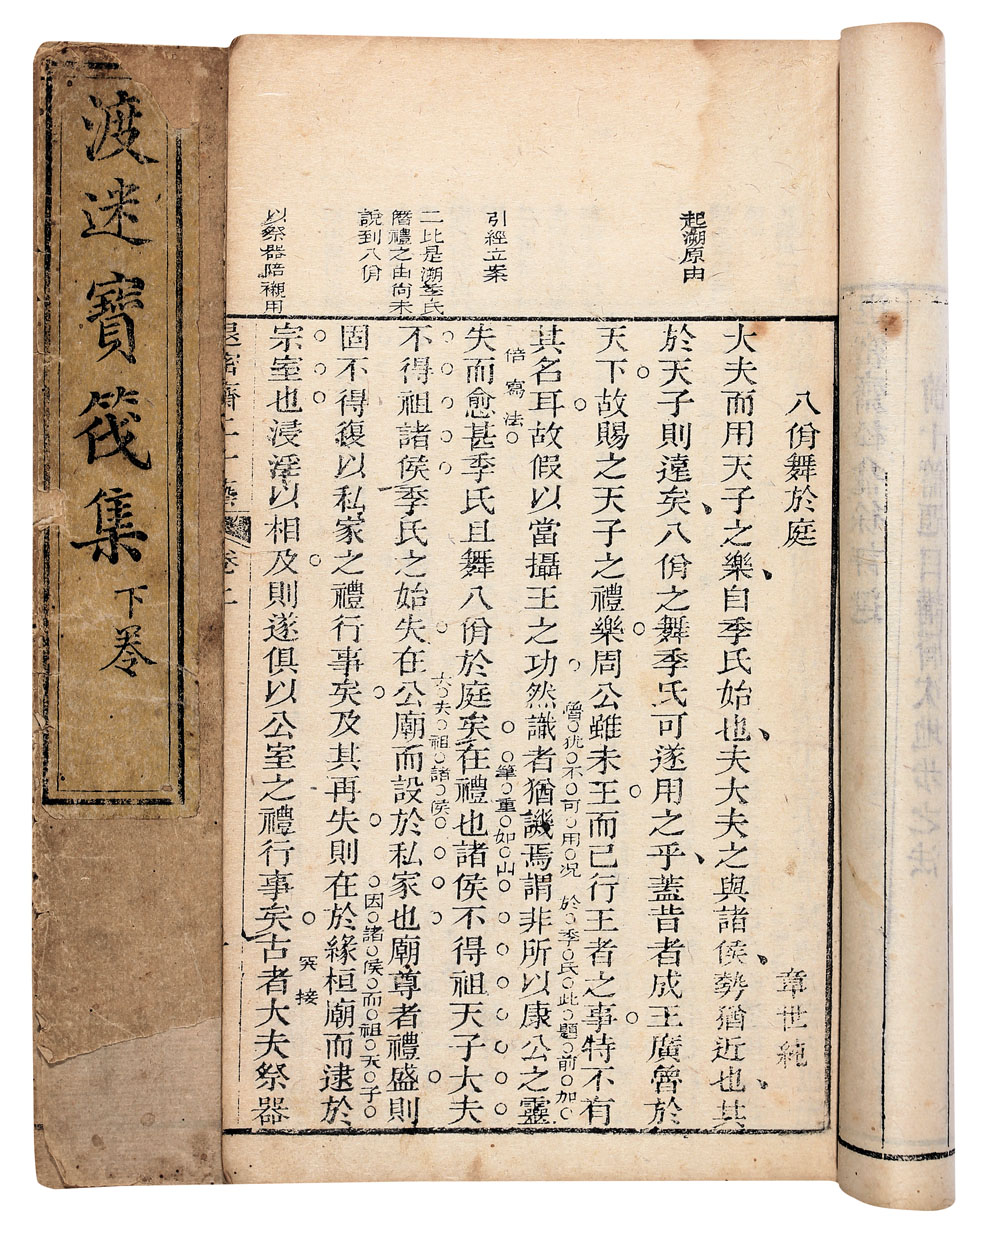 渡迷寶筏集
下卷
八佾舞於庭
章世純
大夫而用天子之樂自季氏始也夫大夫之與諸侯勢猶近也其
於天子則遠矣八佾之舞季氏可遂用之乎蓋昔者成王廣魯於
天下故賜之天子之禮樂周公雖未王而已行王者之事特不有
其名耳故假以當攝王之功然識者猶譏焉謂非所以康公之靈
失而愈甚季氏且舞八佾於庭矣在禮也諸侯不得祖天子大夫
不得祖諸侯季氏之始失在公廟而設於私家也廟尊者禮盛則
固不得復以私家之禮行事矣及其再失則在於緣桓廟而逮於
宗室也浸淫以相及則遂俱以公室之禮行事矣古者大夫祭器
起溯原由
引經立案
二比是溯季氏
僭禮之由尚未
說到八佾
以祭器陪襯用
僭猶不可用况於季氏此題前加一
倍寫法
筆重如山
大夫祖諸侯
因諸侯而祖天子
突接
卷二